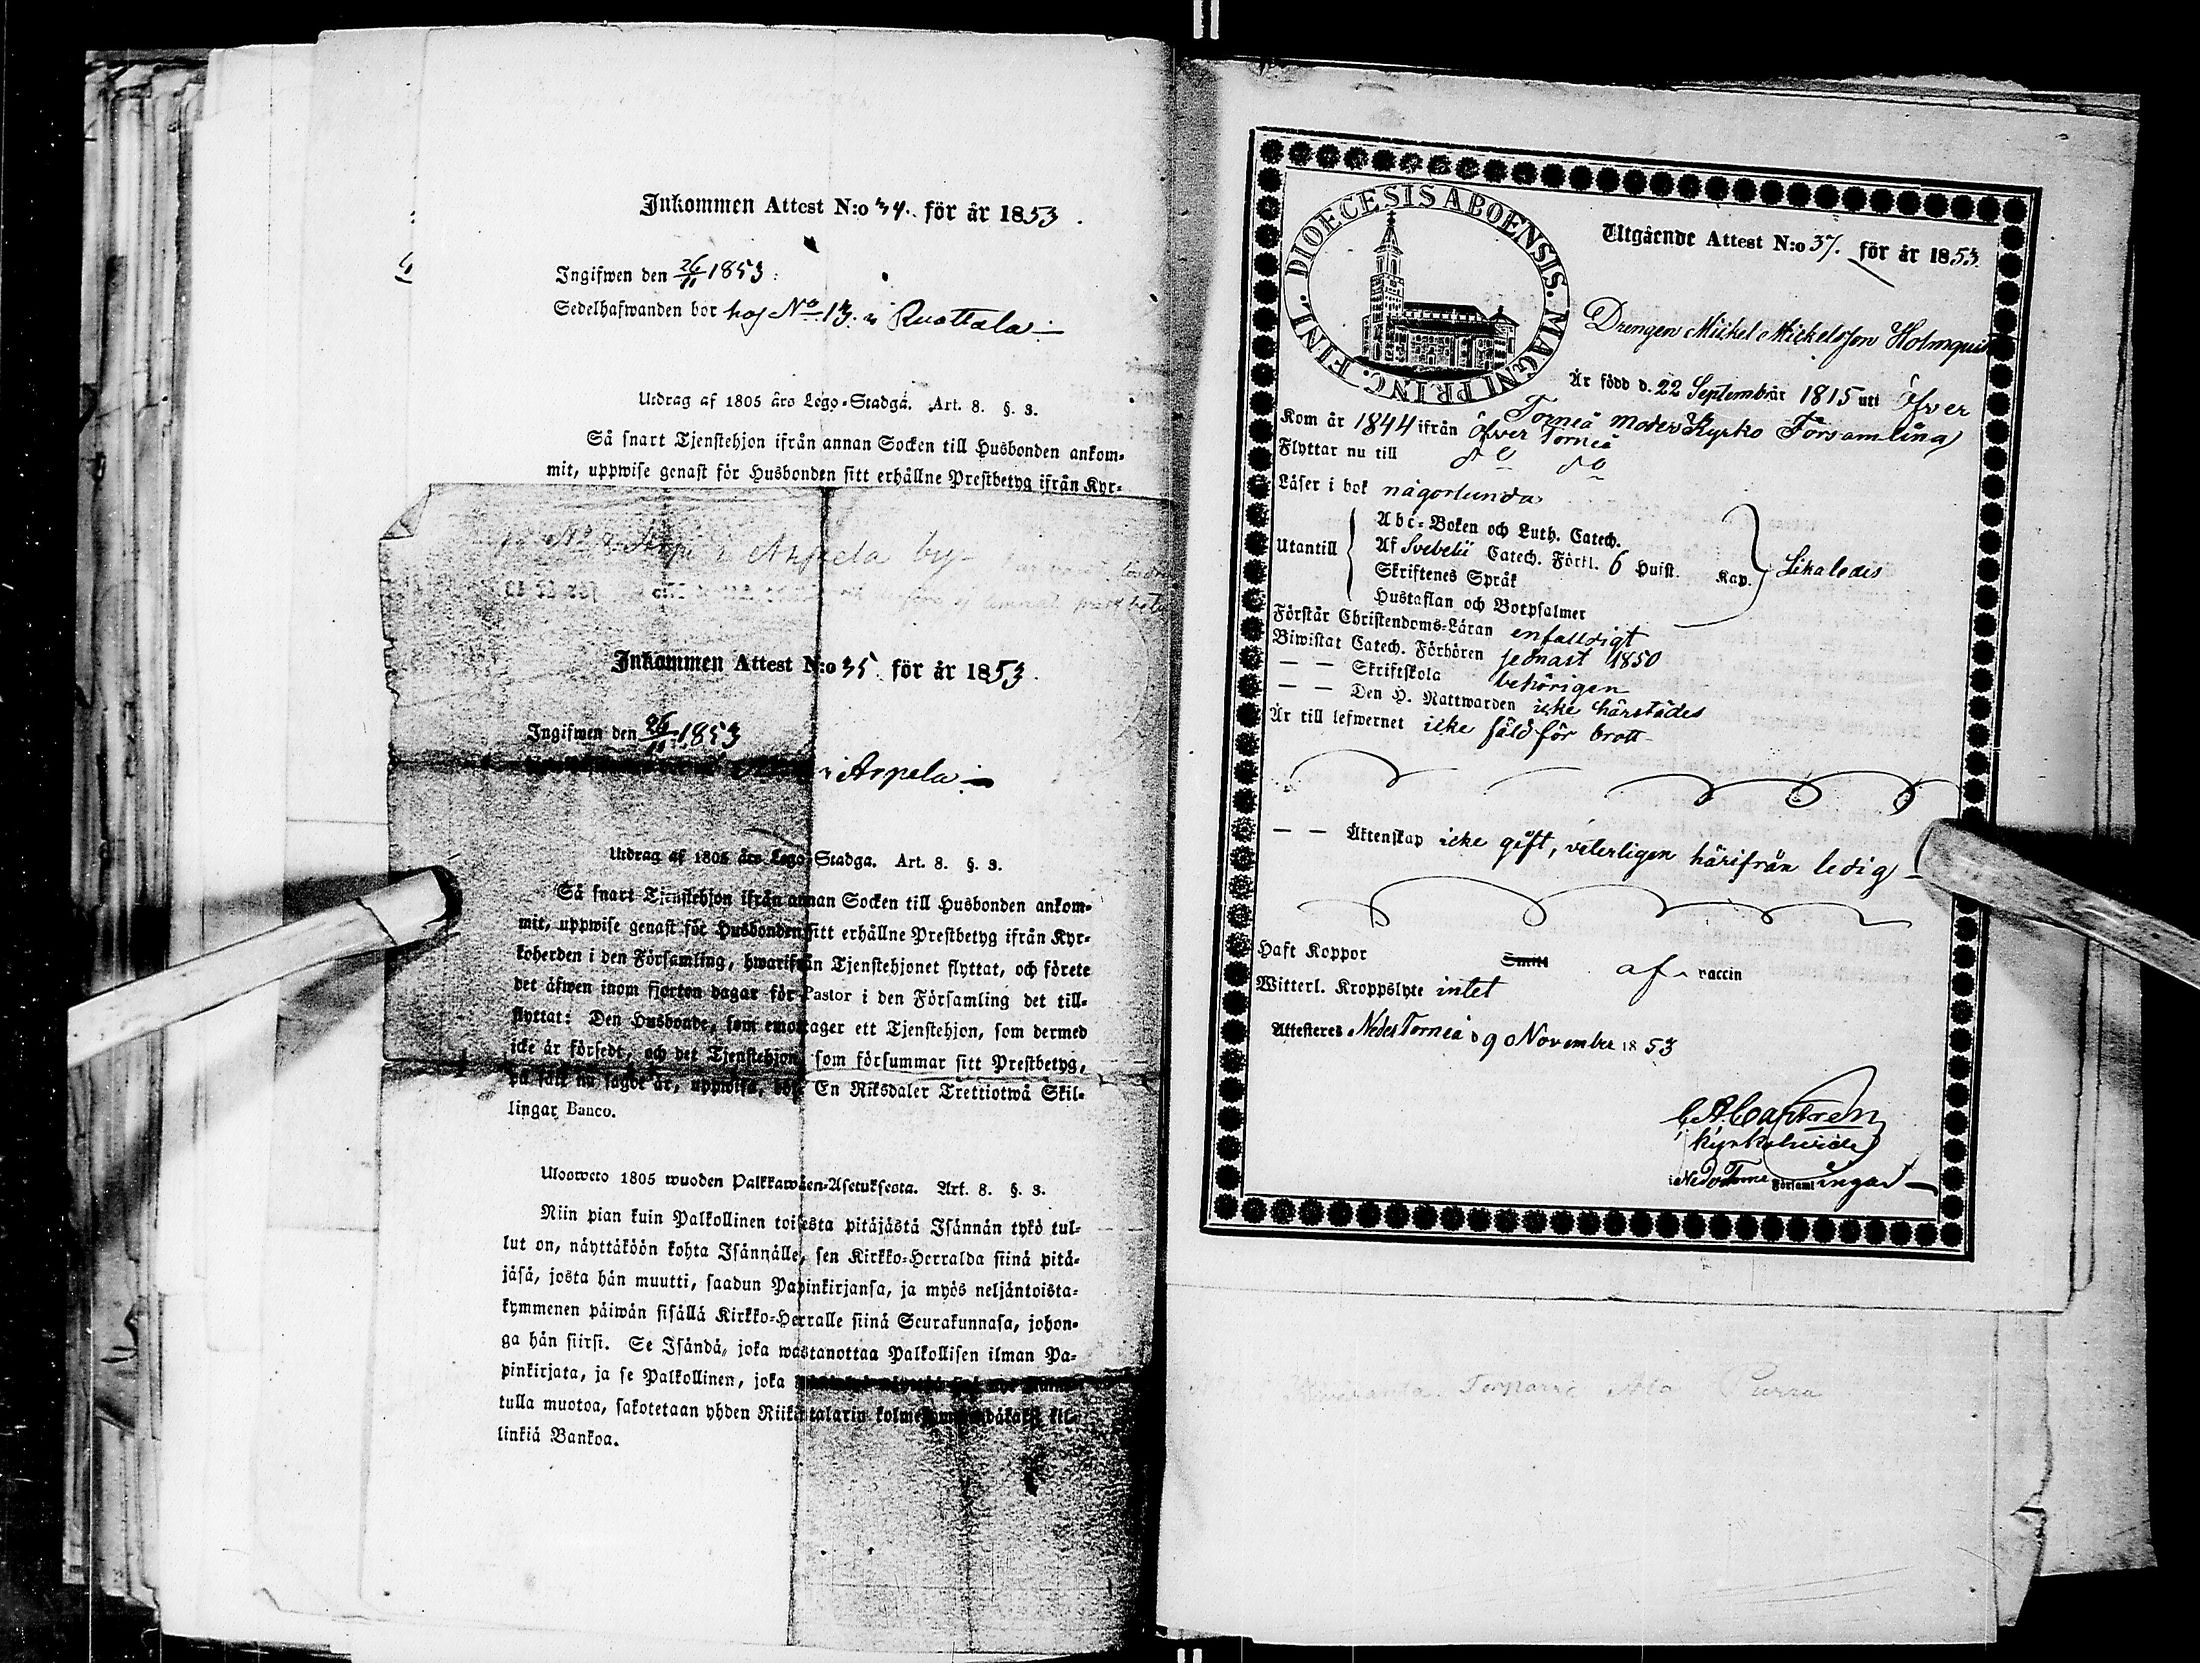 Inkommen Attest N:o 34. för år 1853.
Ingifwen den 26/11 1853.
Sedelhafwanden bor hos No 13. i Ruottala
Utdrag af 1805 års Lego-Stadga. Art. 8. §. 3.
Så snart Tjenstehjon ifrån annan Socken till Husbonden ankom-
mit, uppwise genast för Husbonden sitt erhållne Prestbetyg ifrån Kyr-
Arpela by
Inkommen Attest N:o 35 för år 1853.
Ingifwen den 26/11 1853
i Arpela
Utdrag af 1805 års Lego-Stadga. Art. 8. §. 3.
Så snart Tjenstehjon ifrån annan Socken till Husbonden ankom-
mit, uppwise genast för Husbonden sitt erhållne Prestbetyg ifrån Kyr-
koherden i den Församling, hwarifrån Tjenstehjonet flyttat, och förete
det äfwen inom fjorton dagar för Pastor i den Församling det till-
flyttat: Den Husbonde, som emottager ett Tjenstehjon, som dermed
icke är försedt, och det Tjenstehjon som försummar sitt Prestbetyg,
på sätt nu sagdt är, uppwisa, böte En Riksdaler Trettiotwå Skil-
lingar Banco.
Ulosweto 1805 wuoden Palkkawäen-Asetuksesta. Art. 8. §. 3.
Niin pian kuin Palkollinen toisesta pitäjästä Isännän tykö tul-
lut on, näyttäköön kohta Isännälle, sen Kirkko-Herralda siinä pitä-
jäsä, josta hän muutti, saadun Papinkirjansa, ja myös neljäntoista-
kymmenen päiwän sisällä Kirkko-Herralle siinä Seurakunnasa, johon-
ga hän siirsi. Se Isändä, joka wastanottaa Palkollisen ilman Pa-
pinkirjata, ja se Palkollinen, joka
tulla muotoa, sakotetaan yhden Riikin talarin kolmekymmendäkaksi kil-
linkiä Bankoa.
DIOECESIS ABOENSIS. MAGNI PRINC. FINL.
Utgående Attest N:o 37. för år 1853.
Drengen Mickel Mickelsson Holmquist
Är född d. 22 September år 1815 uti Öfver
Torneå moderKyrko Församling
Kom år 1844 ifrån Öfver Torneå
Flyttar nu till do do
Läser i bok någorlunda
Utantill
Abc-Boken och Luth. Catech.
Af Svebelii Catech. Förkl. 6 Hufst. Kap.
Skriftenes Språk
Hustaflan och Botpsalmer
Likaledes
Förstår Christendoms-Läran enfaldigt
Biwistat Catech. Förhören sednast 1850
— — Skriftskola behörigen
— — Den H. Nattwarden icke härstädes
Är till lefwernet icke fäld för brott
— — Äktenskap icke gift, veterligen härifrån ledig
Haft Koppor Smitt af vaccin
Witterl. Kroppslyte intet
Attesteras Neder Torneå d 9 November 1853
C. A. Castrén
Kyrkoherde
i Neder Torne Församlingar
Purra